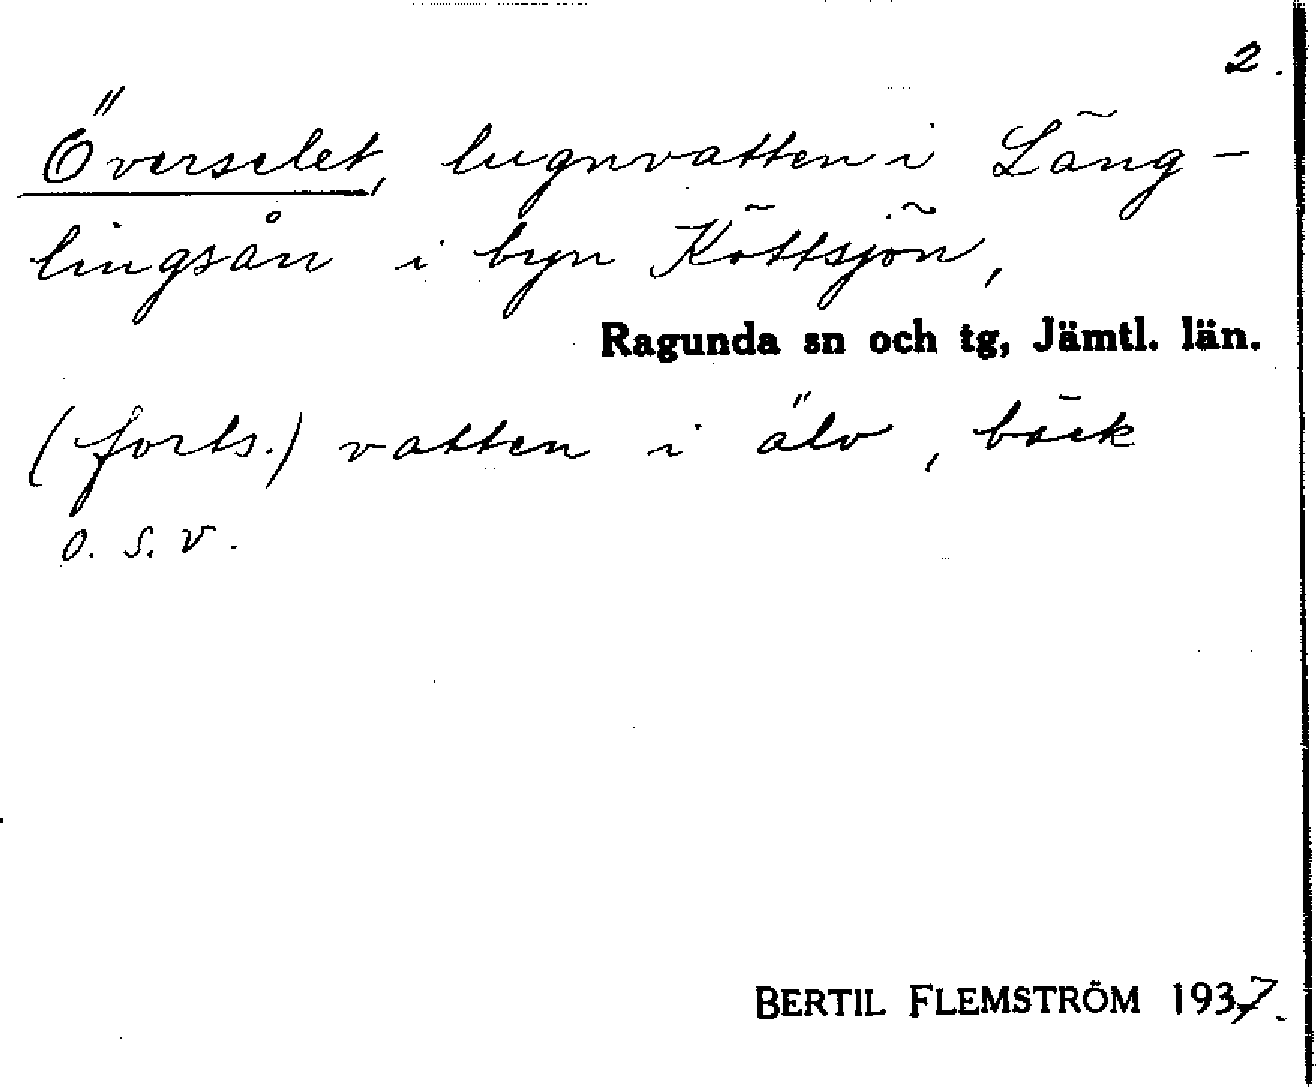 2.
Överselet, lugnvatten i Läng-
lingsån i byn Köttsjön,
Ragunda sn och tg, Jämtl. län.
(forts.) vatten i älv, bäck
o. s. v.
BERTIL FLEMSTRÖM 1937.